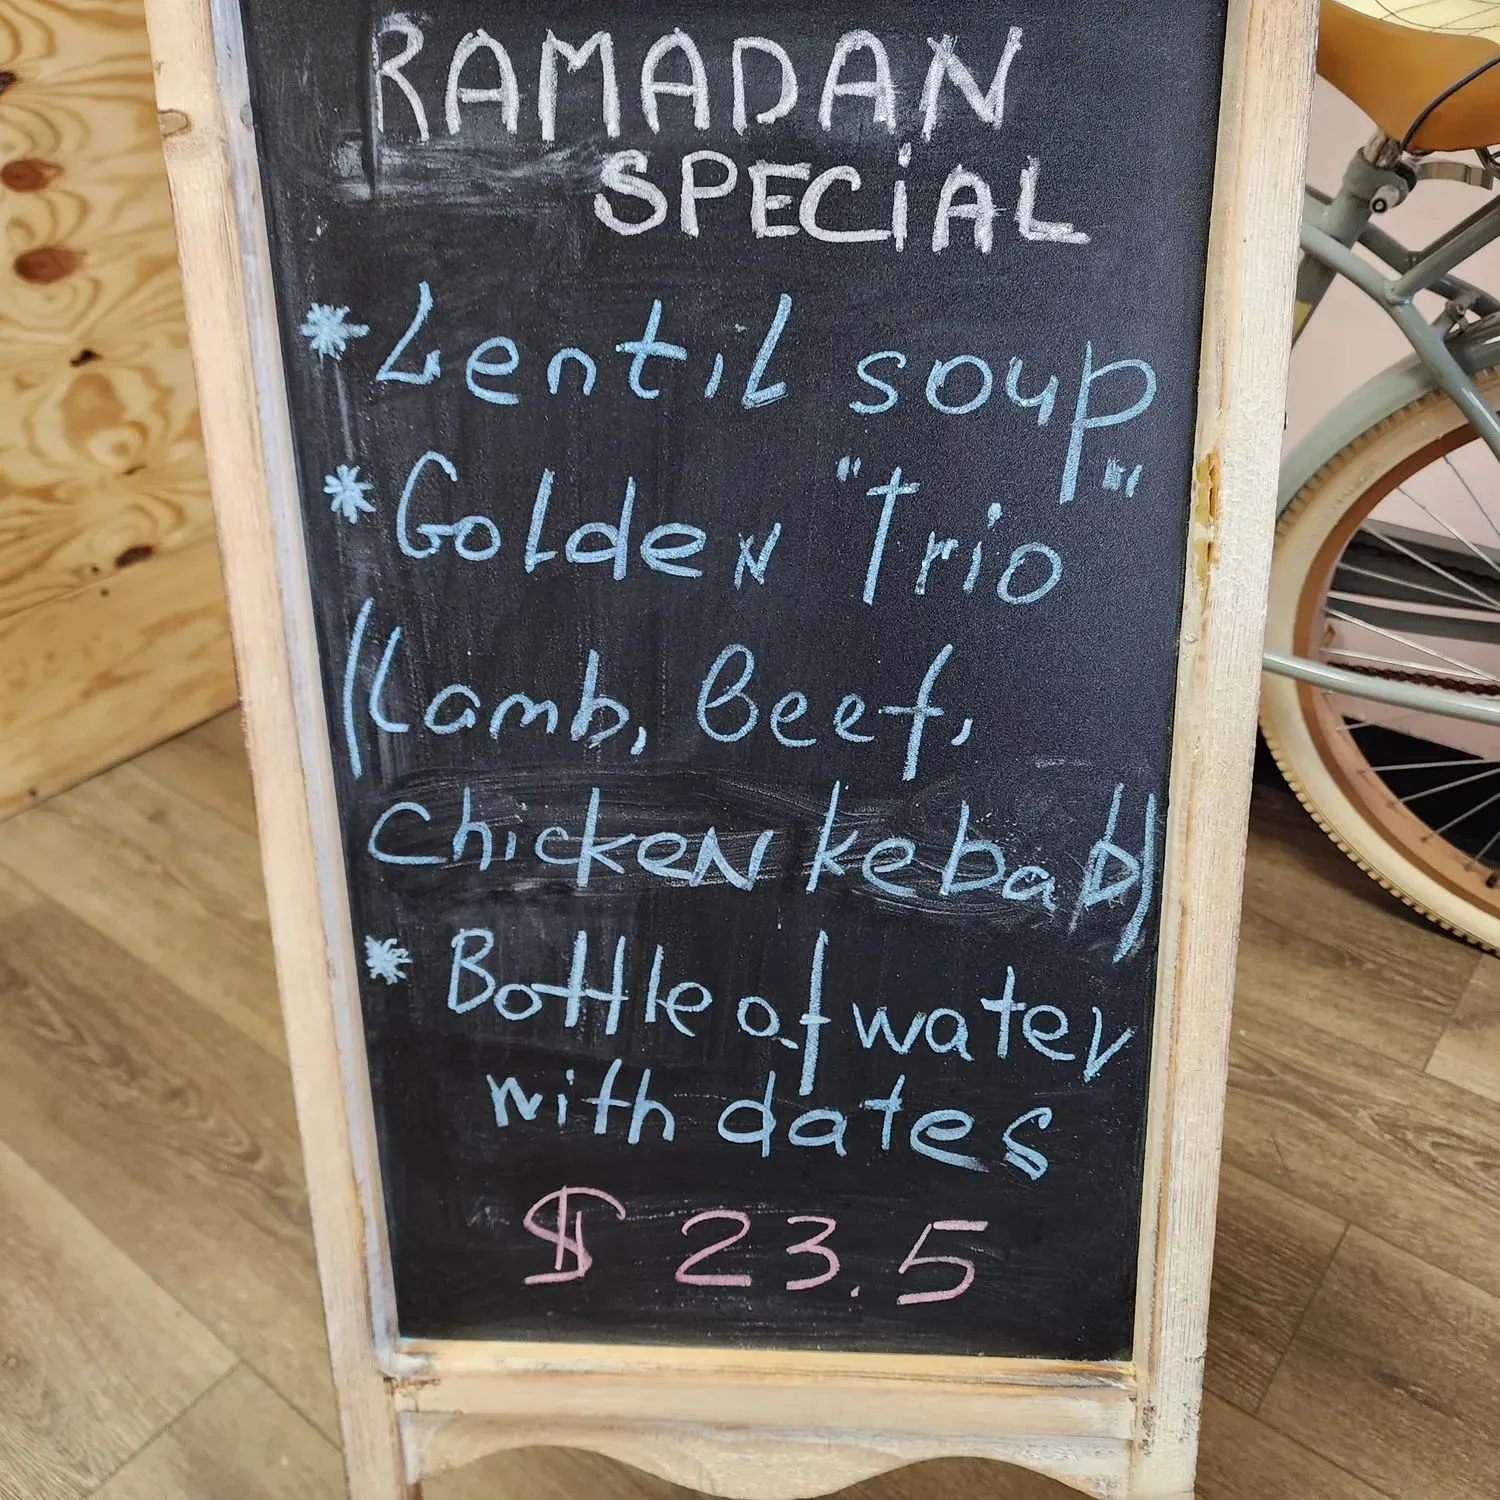 RAMADAN
SPECiAL
* Lentil soup
* Golden "Trio"
(Lamb, Beef,
Chicken kebab)
* Bottle of water
with dates
$ 23.5